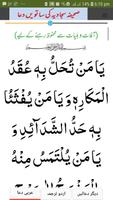 6:10 pm
صحیفہ سجادیہ کی ساتویں دعا
(آفات و بلیات سے محفوظ رہنے کے لیے)
يَا مَنْ تُحَلُّ بِهٖ عُقَدُ
الْمَكَارِهِ وَيَا مَنْ يُفْثَئُ
بِهٖ حَدُّ الشَّدَآئِدِ وَ
يَا مَنْ يُلْتَمَسُ مِنْهُ
عربی دعا اردو ترجمہ دیگر دعائیں